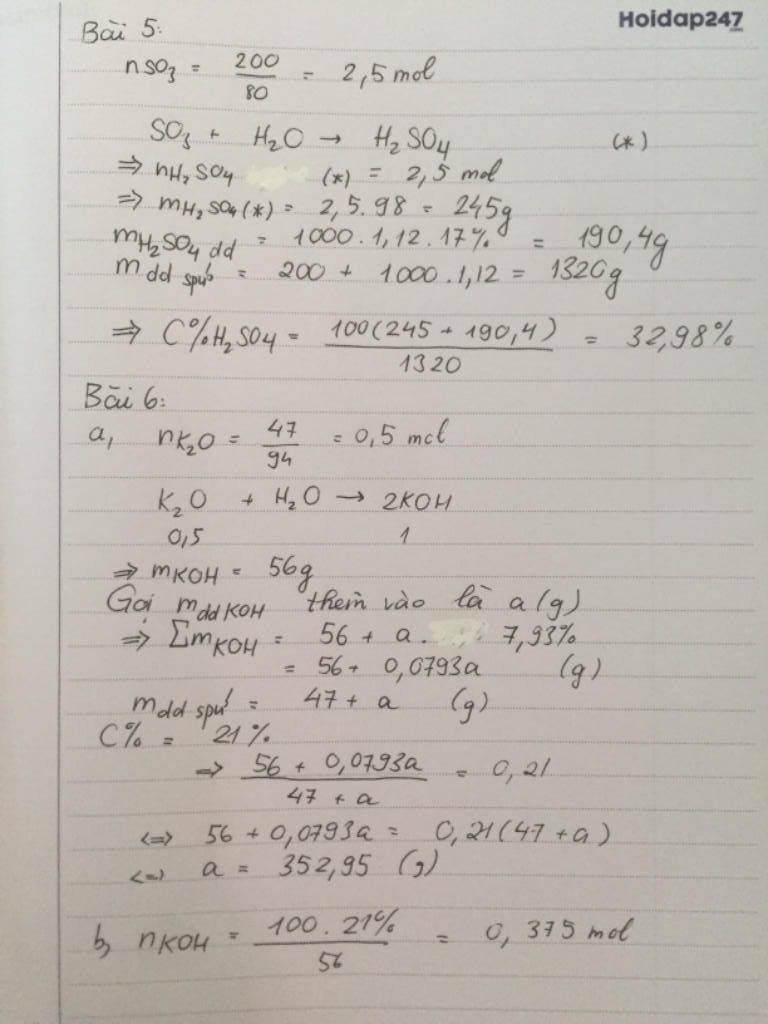 Hoidap247
Bài 5:
nSO₃ = 200/80 = 2,5 mol
SO₃ + H₂O → H₂SO₄ (*)
⇒ nH₂SO₄ (*) = 2,5 mol
⇒ mH₂SO₄(*) = 2,5.98 = 245g
mH₂SO₄ dd = 1000.1,12.17% = 190,4g
mdd spứ = 200 + 1000.1,12 = 1320g
⇒ C%H₂SO₄ = 100(245 + 190,4)/1320 = 32,98%
Bài 6:
a, nK₂O = 47/94 = 0,5 mol
K₂O + H₂O → 2KOH
0,5 1
⇒ mKOH = 56g
Gọi mddKOH thêm vào là a(g)
⇒ ΣmKOH = 56 + a. 7,93%
= 56 + 0,0793a (g)
mdd spứ = 47 + a (g)
C% = 21%
⇒ (56 + 0,0793a)/(47 + a) = 0,21
⇔ 56 + 0,0793a = 0,21(47 + a)
⇔ a = 352,95 (g)
b, nKOH = 100.21%/56 = 0,375 mol